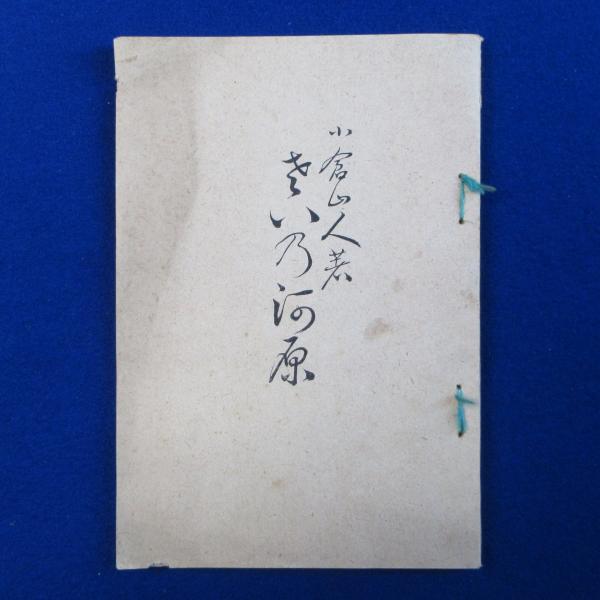 小倉山人著
さい乃河原